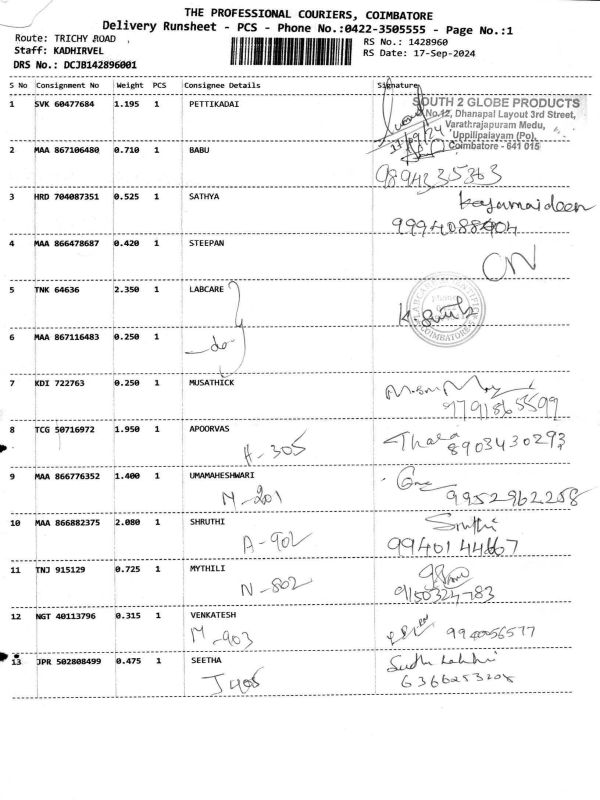 THE PROFESSIONAL COURIERS, COIMBATORE
Delivery Runsheet - PCS - Phone No.:0422-3505555 - Page No.:1
Route: TRICHY ROAD
Staff: KADHIRVEL
DRS No.: DCJB142896001
RS No.: 1428960
RS Date: 17-Sep-2024
S No Consignment No Weight PCS Consignee Details Signature
1 SVK 60477684 1.195 1 PETTIKADAI
SOUTH 2 GLOBE PRODUCTS
No.12, Dhanapal Layout 3rd Street,
Varathrajapuram Medu,
Uppilipalayam (Po),
Coimbatore - 641 015
17/09/24
2 MAA 867106480 0.710 1 BABU
9894235363
3 HRD 704087351 0.525 1 SATHYA
Kajamaideen
4 MAA 866478687 0.420 1 STEEPAN
5 TNK 64636 2.350 1 LABCARE
COIMBATORE
6 MAA 867116483 0.250 1
-do-
7 KDI 722763 0.250 1 MUSATHICK
9791865599
8 TCG 50716972 1.950 1 APOORVAS
H-305
Thara
8903430293
9 MAA 866776352 1.400 1 UMAMAHESHWARI
M-201
9952962258
10 MAA 866882375 2.080 1 SHRUTHI
A-902
Sruthi
11 TNJ 915129 0.725 1 MYTHILI
N-802
12 NGT 40113796 0.315 1 VENKATESH
M-903
13 JPR 502808499 0.475 1 SEETHA
J405